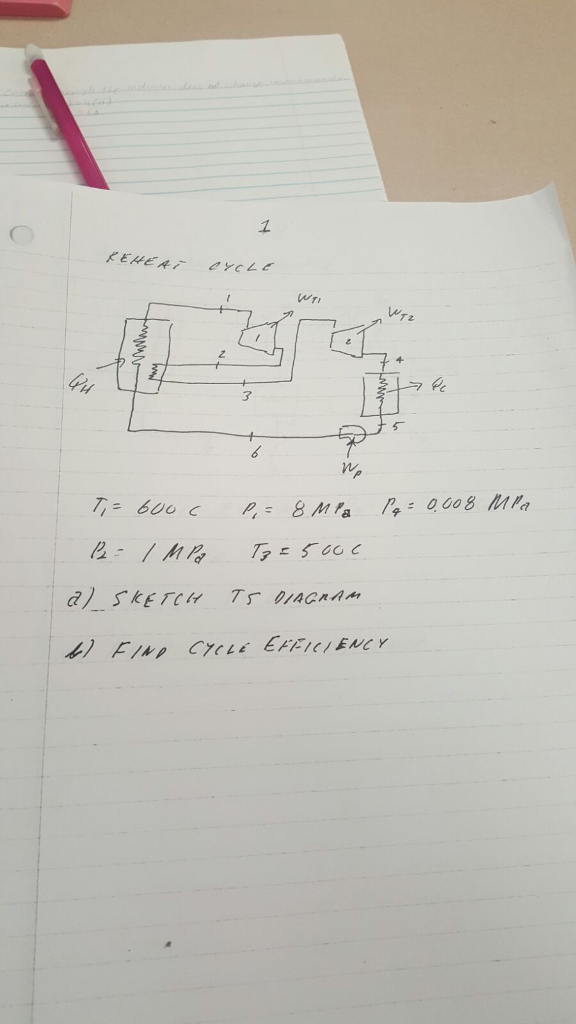 1
REHEAT CYCLE
1 WT1
1 2 WT2
2 4
QH 3 Qc
5
6
Wp
T1 = 600 C P1 = 8 MPa P4 = 0.008 MPa
P2 = 1 MPa T3 = 500 C
a) SKETCH TS DIAGRAM
b) FIND CYCLE EFFICIENCY